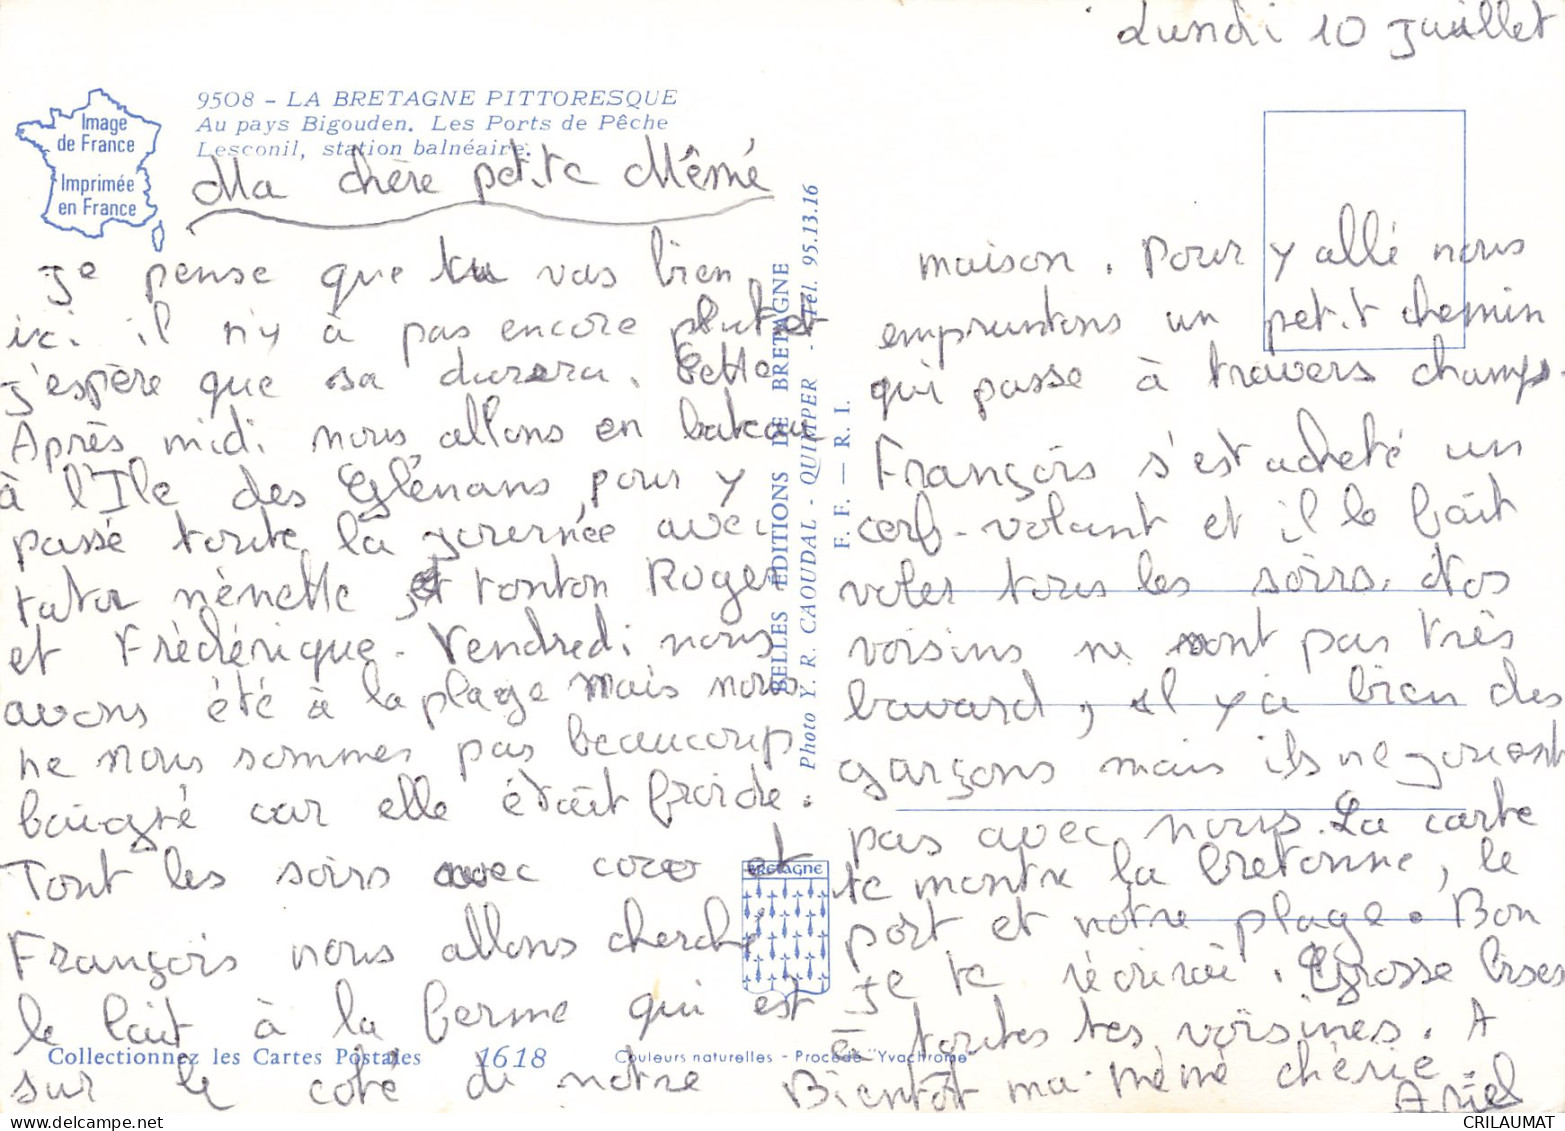 Lundi 10 Juillet
Image
de France
Imprimée
en France
9508 - LA BRETAGNE PITTORESQUE
Au pays Bigouden. Les Ports de Pêche
Lesconil, station balnéaire.
Ma chère petite Mêmé
Je pense que tu vas bien
ici il n'y à pas encore plut et
j'espère que sa durera. Cette
Après midi nous allons en bateau
à l'Ile des Glénans pour y
passé toute la journée avec
tata nènette et tonton Roger
et Frèdérique. Vendredi nous
avons été à la plage mais nous
ne nous sommes pas beaucoup
baigné car elle était froide.
Tout les soirs avec coco et
François nous allons cherché
le lait à la ferme qui est
sur le coté de notre
maison. Pour y allé nous
empruntons un petit chemin
qui passe à travers champs.
François s'est acheté un
cerf-volant et il le fait
voler tous les soirs. Nos
voisins ne sont pas très
bavard, il y a bien des
garçons mais ils ne jouent
pas avec nous. La carte
te montre la bretonne, le
port et notre plage. Bon
Je te récrirai. Grosse bises
à toutes tes voisines. A
Bientôt ma mémé chérie
Ariel
BELLES ÉDITIONS DE BRETAGNE
Photo Y. R. CAOUDAL - QUIMPER - Tél. 95.13.16
F. F. — R. I.
BRETAGNE
Collectionnez les Cartes Postales
1618
Couleurs naturelles - Procédé "Yvachrome"
CRILAUMAT